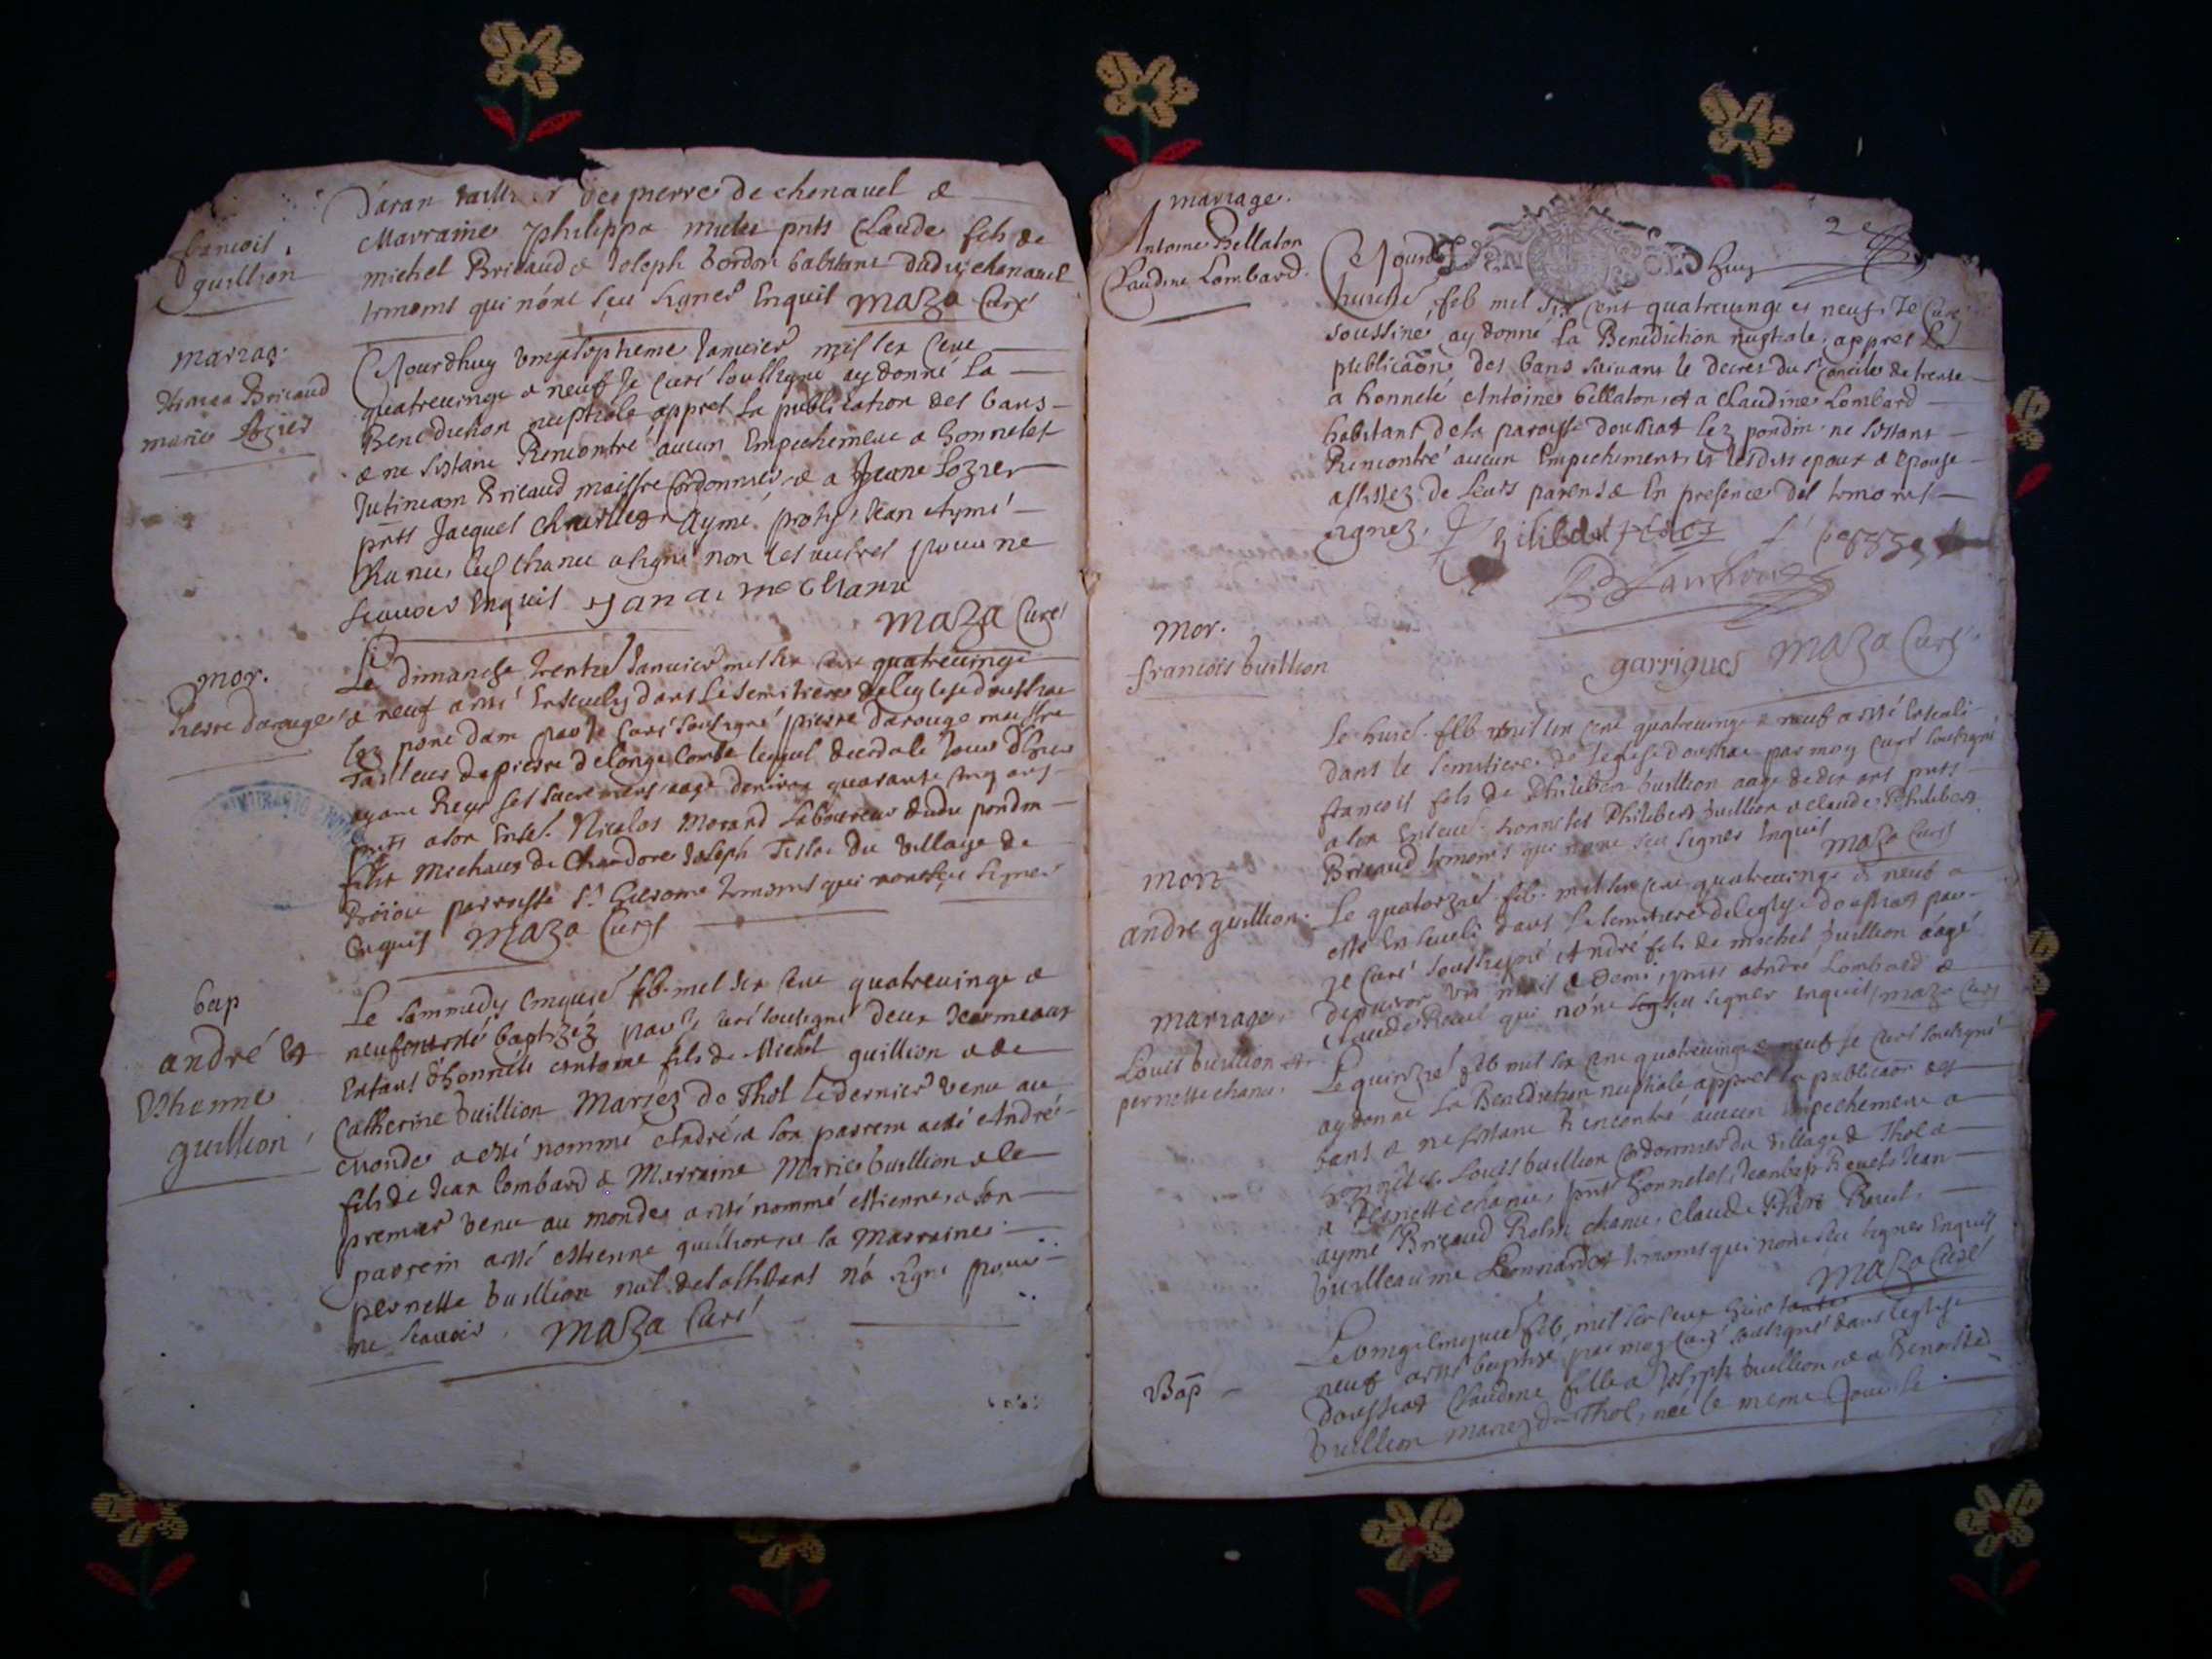 francois
guillion
Daran taill r des pierres de chenauel &
Marraine philippa prnts Claude fils de
michel Bricaud & Joseph bordon habitans dudit chenauel
temoins qui n'ont sçeu signer Enquis maza Curé
mariag.
Bricaud
marie Lozier
Cejourdhuy vingtseptieme Januier mil six cent
quatreuingt & neuf Je curé soussigné ay donné la
Benediction nuptiale appres la publication des bans
& ne sestant Rencontré aucun Empechement a honnetes
Bricaud maistre Cordonnier & a Jeane Lozier
prnts Jacques Aymé Jean Aymé
Chanu a signé non les autres pour ne
scauoir Enquis Jan aime Chanu
maza Curé
mor.
Pierre darouge
Le dimanche trente Januier mil six cent quatreuingt
& neuf a esté Enseuely dans le semitiere de leglise doussiat
lez pont dam par Je Curé soussigné pierre darouge maistre
tailleur de pierre de longe Combe lequel decedale Jour dhier
ayant Reçu ses sacremens aagé denviron quarante cinq ans
prnts a son Ensel. Nicolas Morand Laboureur dudit pondin
Michaux de Chandore Joseph Tissot du village de
parroisse St Gierome temoins qui nont sçu signer
Enquis maza Curé
bap
andré Et
Estienne
guillion
Le sammedy cinquié feb. mil six cent quatreuingt &
neuf ont esté baptizéz par Je curé soussigné deux Jeumeaux
Enfans d'honnete Antoine fils de Michel guillion & de
Catherine Vuillion Mariez de Thol le dernier venu au
monde a esté nommé André & son parrein a esté André
fils de Jean lombard & Marraine Marie Vuillion & le
premier venu au monde a esté nommé estienne & son
parrein a esté estienne guillion & la Marraine
pernette Vuillion nul des assistans n'a signé pour
ne scauoir. maza Curé
mariage.
Antoine Bellaton
Claudine Lombard.
2e
Cejourd huy
huictié feb mil six cent quatreuingt et neuf Je Curé
soussiné ay donné la Benediction nuptiale appres la
publicaõn des bans suiuant le decret du st Concile de trente
a honneté Antoine bellaton et a Claudine Lombard
habitans de la paroisse doussiat lez pondin ne sestant
Rencontré aucun Empechement et lesdits epoux & epouse
assistez de leurs parens & En presence des temoins
signez,
garrigues maza Curé
mor.
francois Vuillion
Le huicé feb mil six cent quatreuingt & neuf a esté Enseueli
dans le semitiere de leglise doussiat par moy Curé soussigné
francois fils de Philibert Vuillion aagé de dix ans prnts
a son Enseuel. honnetes Philibert Vuillion & claude Philibert
Bricaud temoins qui n'ont sceu signer Enquis maza Curé
mort
andre guillion.
Le quatorzié feb. mil six cent quatreuingt & neuf a
esté Enseueli dans le semitiere de leglise doussiat par
Je Curé soussigné André fils de michel Vuillion áagé
denuiron un mois & demi, prnts André Lombard &
claude Reuel qui n'ont sçeu signer enquis maza Curé
mariage,
Louis Vuillion et
pernette chanu.
Le quinzié feb mil six cent quatreuingt & neuf Je Curé soussigné
ay donné La Benediction nuptiale appres la publicaõn des
bans & ne sestant Rencontré aucun Empechement a
honnetes Louis Vuillion Cordonnier du village de Thol &
a Pernette chanu, prnts honnetes Jeanbap Reuel Jean
aymé Bricaud chanu, claude Reuel,
Vuilleaume Leonnardet temoins qui nont sçu signer Enquis
maza Curé
Bap̃
Le vingtcinquié feb, mil six cent huictante
neuf a esté baptizé par moy Curé soussigné dans leglise
doussiat Claudine fille a Joseph Vuillion & a Benoiste
Vuillion mariez de Thol, née le meme Jour le